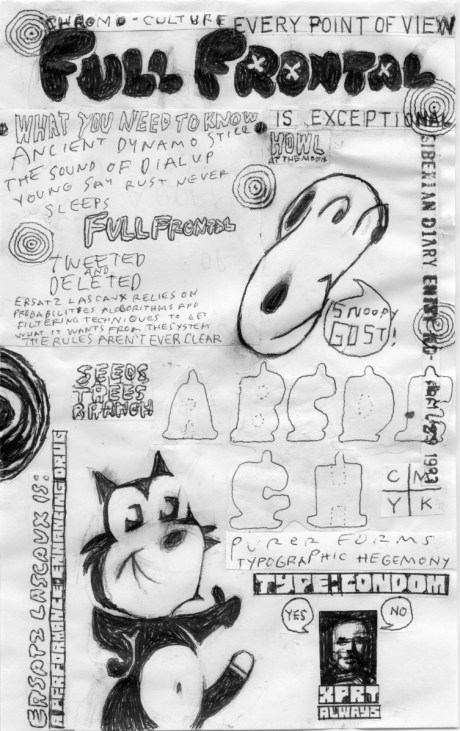 CHROMO-CULTURE EVERY POINT OF VIEW
FULL FRONTAL
IS EXCEPTIONAL
WHAT YOU NEED TO KNOW
ANCIENT DYNAMO STILL
THE SOUND OF DIALUP
YOUNG SAY RUST NEVER
SLEEPS
HOWL
AT THE MOON
FULL FRONTAL
TWEETED
AND
DELETED
ERSATZ LASCAUX RELIES ON
PROBABILITIES ALGORITHMS AND
FILTERING TECHNIQUES TO GET
WHAT IT WANTS FROM THE SYSTEM
THE RULES AREN'T EVER CLEAR
SNOOPY
GOST!
SIBERIAN DIARY ENTRY NO 1983
SEEDS
TREES
BRANCH
A B C D
E H
C M
Y K
PURER FORMS
TYPOGRAPHIC HEGEMONY
TYPE:CONDOM
YES
NO
XPRT
ALWAYS
ERSATZ LASCAUX IS:
A PERFORMANCE ENHANCING DRUG